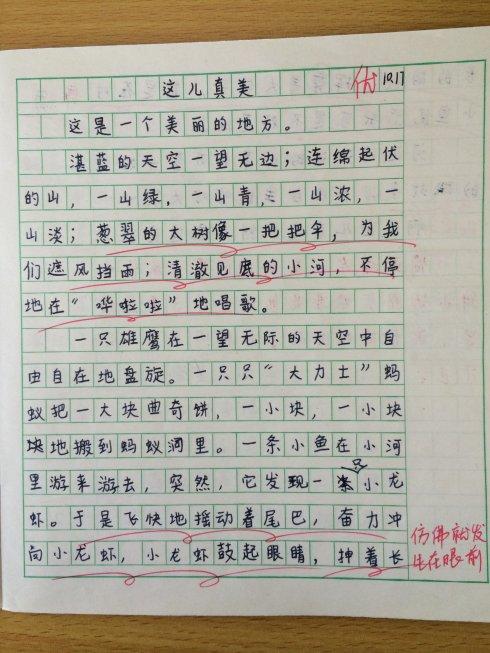 这儿真美 优 10.17
这是一个美丽的地方。
湛蓝的天空一望无边；连绵起伏
的山，一山绿，一山青，一山浓，一
山淡；葱翠的大树像一把把伞，为我
们遮风挡雨；清澈见底的小河，不停
地在“哗啦啦”地唱歌。
一只雄鹰在一望无际的天空中自
由自在地盘旋。一只只“大力士”蚂
蚁把一大块曲奇饼，一小块，一小块
块地搬到蚂蚁洞里。一条小鱼在小河
里游来游去，突然，它发现一只小龙
虾。于是飞快地摇动着尾巴，奋力冲
向小龙虾，小龙虾鼓起眼睛，抻着长
仿佛就发
生在眼前